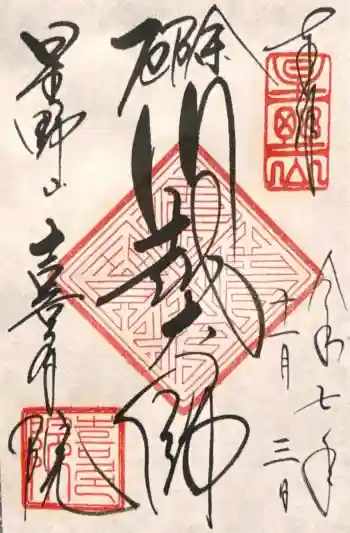 奉拝
令和七年
十一月三日
厄除
川越大師
星野山
喜多院